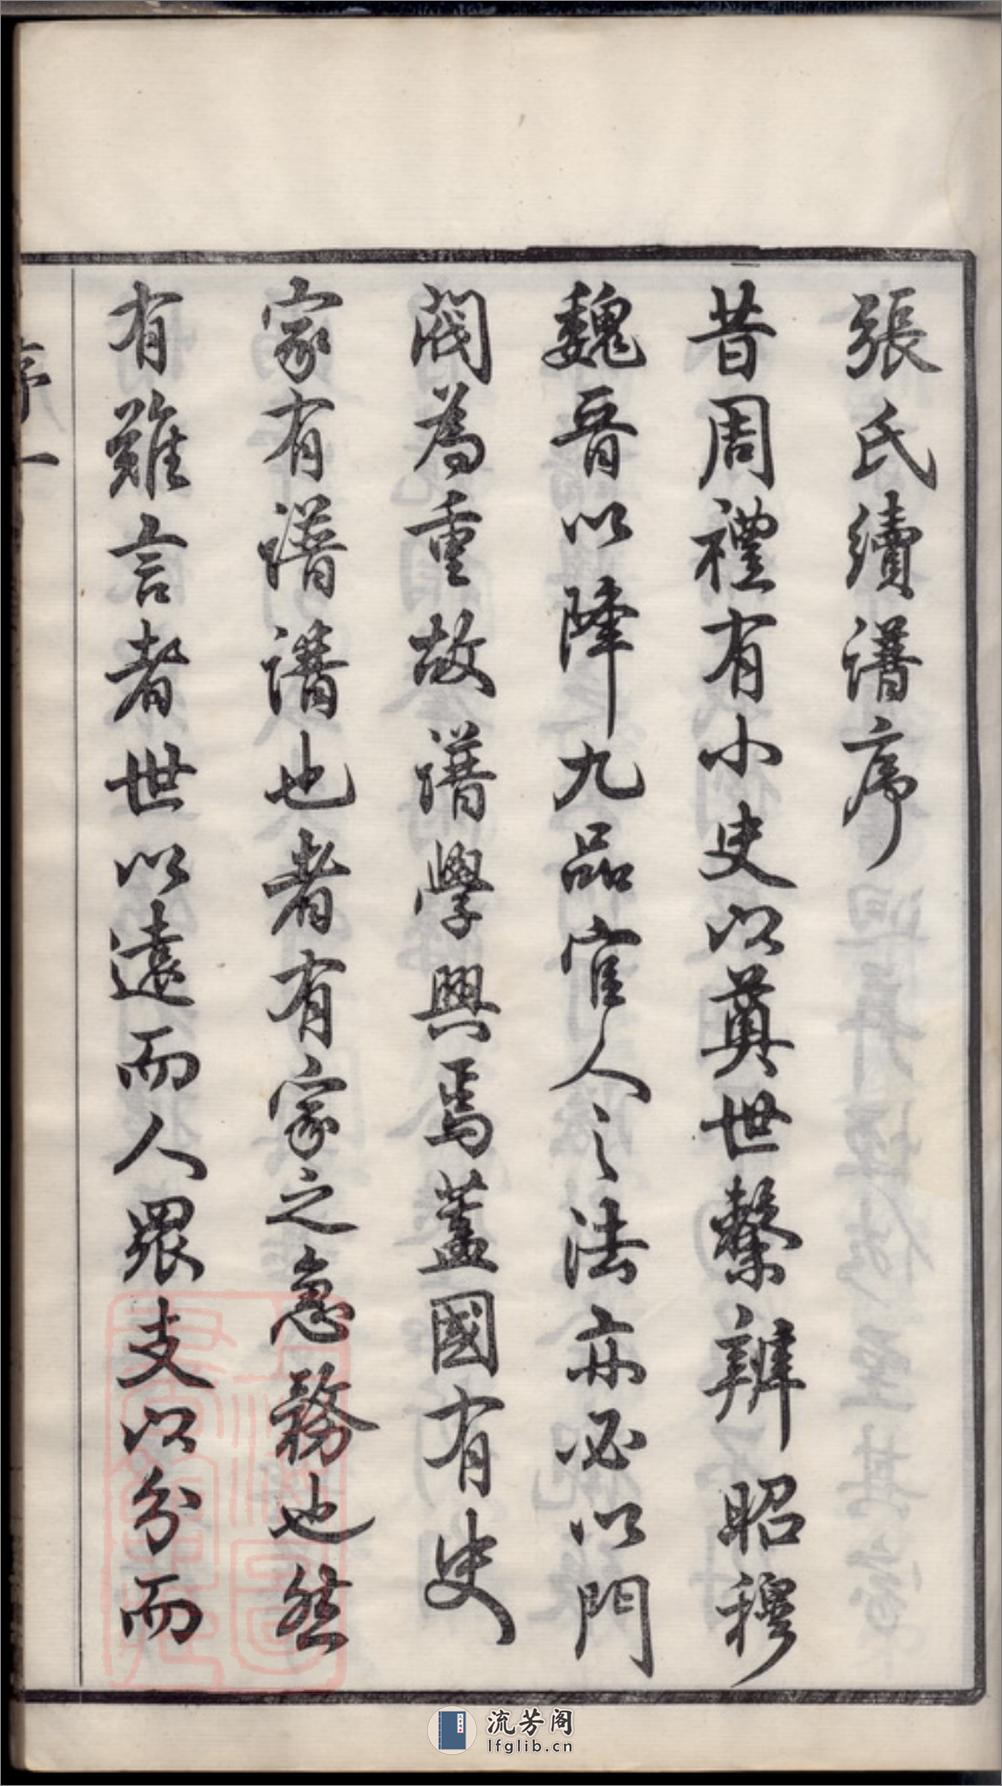 張氏續譜序
昔周禮有小史以奠世繫辨昭穆
魏晉以降九品官人之法亦必以門
閥為重故譜學興焉蓋國有史
家有譜譜也者有家之急務也然
有難言者世以遠而人眾支以分而
序一
流芳阁
lfglib.cn